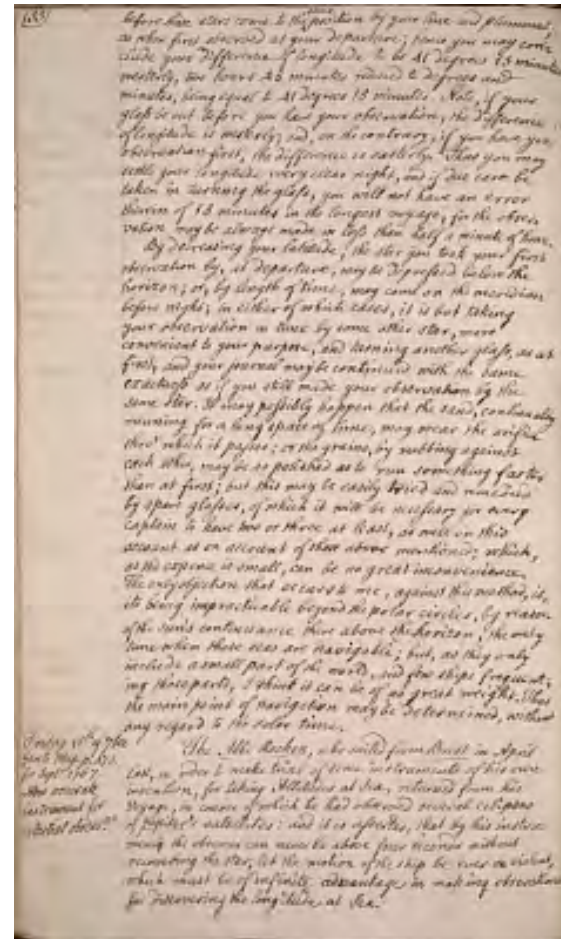 before these stars come to the same position by your line and plummet,
as when first observed at your departure; hence you may con=
clude your difference of longitude to be 41 degrees 15 minutes
westerly, two hours 45 minutes reduced to degrees and
minutes, being equal to 41 degrees 15 minutes. Note, if your
glass is out before you have your observation, the difference
of longitude is westerly; and, on the contrary, if you have your
observation first, the difference is easterly. Thus you may
settle your longitude every clear night, and if due care be
taken in turning the glass, you will not have an error
therein of 15 minutes in the longest voyage, for the obser=
vation may be always made in less than half a minute of time.
By decreasing your latitude, the star you took your first
observation by, at departure, may be depressed below the
horizon; or, by length of time, may come on the meridian
before night; in either of which cases, it is but taking
your observation in time by some other star, more
convenient to your purpose, and turning another glass, as at
first, and your journal may be continued with the same
exactness as if you still made your observation by the
same star. It may possibly happen that the sand, continually
running for a long space of time, may wear the orifice
thro' which it passes; or the grains, by rubbing against
each other, may be so polished as to run something faster
than at first; but this may be easily tried and remedied
by spare glasses, of which it will be necessary for every
captain to have two or three at least, as well on this
account as on account of those above mentioned; which,
as the expence is small, can be no great inconvenience.
The only objection that occurs to me, against this method, is,
its being impracticable beyond the polar circles, by reason
of the sun's continuance there above the horizon, the only
time when those seas are navigable; but, as they only
include a small part of the world, and few ships frequent=
ing those parts, I think it can be of no great weight. Thus
the main point of navigation may be determined, without
any regard to the solar time.
Gent: Mag. p.
for Sept. 1767
instrument for
The Abbe Rochon, who sailed from Brest in April
last, in order to make trial of some instruments of his own
invention, for taking Altitudes at Sea, returned from his
Voyage, in course of which he had observed several eclipses
of Jupiter's satellites: and it is asserted, that by his instru=
ments the observer can never be above four seconds without
recovering the star, let the motion of the ship be ever so violent,
which must be of infinite advantage in making observations
for discovering the longitude at Sea.